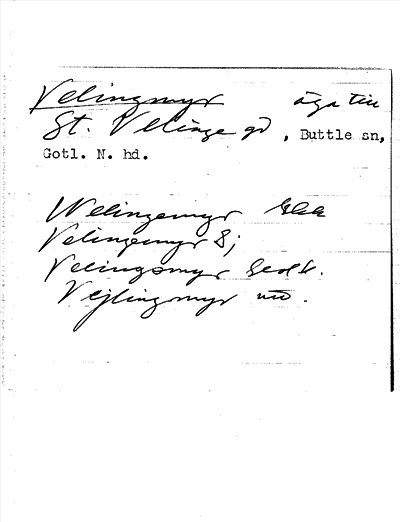 Velingmyr äga till
St. Velinge gd, Buttle sn,
Gotl. N. hd.
Welingemyr
Velingemyr S;
Velingsmyr
Vejlingmyr